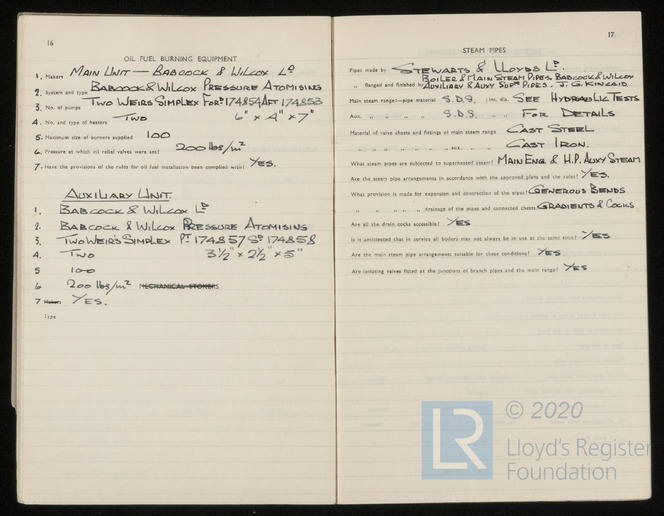 16
OIL FUEL BURNING EQUIPMENT
1. Makers MAIN UNIT — BABCOCK & WILCOX LD
2. System and type BABCOCK & WILCOX PRESSURE ATOMISING
3. No. of pumps TWO WEIRS SIMPLEX FORD 174854 AFT 174853
6" × 4" × 7"
4. No. and type of heaters TWO
5. Maximum size of burners supplied 100
6. Pressure at which oil relief valves were set? 200 lbs/in2
7. Have the provisions of the rules for oil fuel installation been complied with? YES.
AUXILIARY UNIT.
1. BABCOCK & WILCOX LD
2. BABCOCK & WILCOX PRESSURE ATOMISING
3. TWO WEIR'S SIMPLEX PT 174857 SD 174858
4. TWO 3½" × 2½" × 5"
5 100
6 200 lbs/in2 MECHANICAL STOKERS
7 Makers YES.
Type
17
STEAM PIPES
Pipes made by STEWARTS & LLOYDS LD.
BOILER & MAIN STEAM PIPES. BABCOCK & WILCOX
" flanged and finished by AUXILIARY & AUXY SUPD PIPES. J. G. KINCAID.
Main steam range:—pipe material S.D.S. int. dia. SEE HYDRAULIC TESTS
Aux. " " " S.D.S. " " FOR DETAILS
Material of valve chests and fittings of main steam range CAST STEEL
" " " " " aux. " CAST IRON.
What steam pipes are subjected to superheated steam? MAIN ENG & H.P. AUXY STEAM
Are the steam pipe arrangements in accordance with the approved plans and the rules? YES.
What provision is made for expansion and contraction of the pipes? GENEROUS BENDS
" " " " drainage of the pipes and connected chests? GRADIENTS & COCKS
Are all the drain cocks accessible? YES
Is it anticipated that in service all boilers may not always be in use at the same time? YES
Are the main steam pipe arrangements suitable for these conditions? YES
Are isolating valves fitted at the junctions of branch pipes and the main range? YES
LR © 2020
Lloyd's Register
Foundation